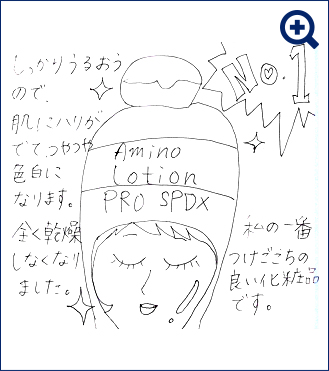 しっかりうるおう
ので、
肌にハリが
でて、つやつや
色白に
なります。
全く乾燥
しなくなり
ました。
No.1
Amino
Lotion
PRO SPDX
私の一番
つけごこちの
良い化粧品
です。